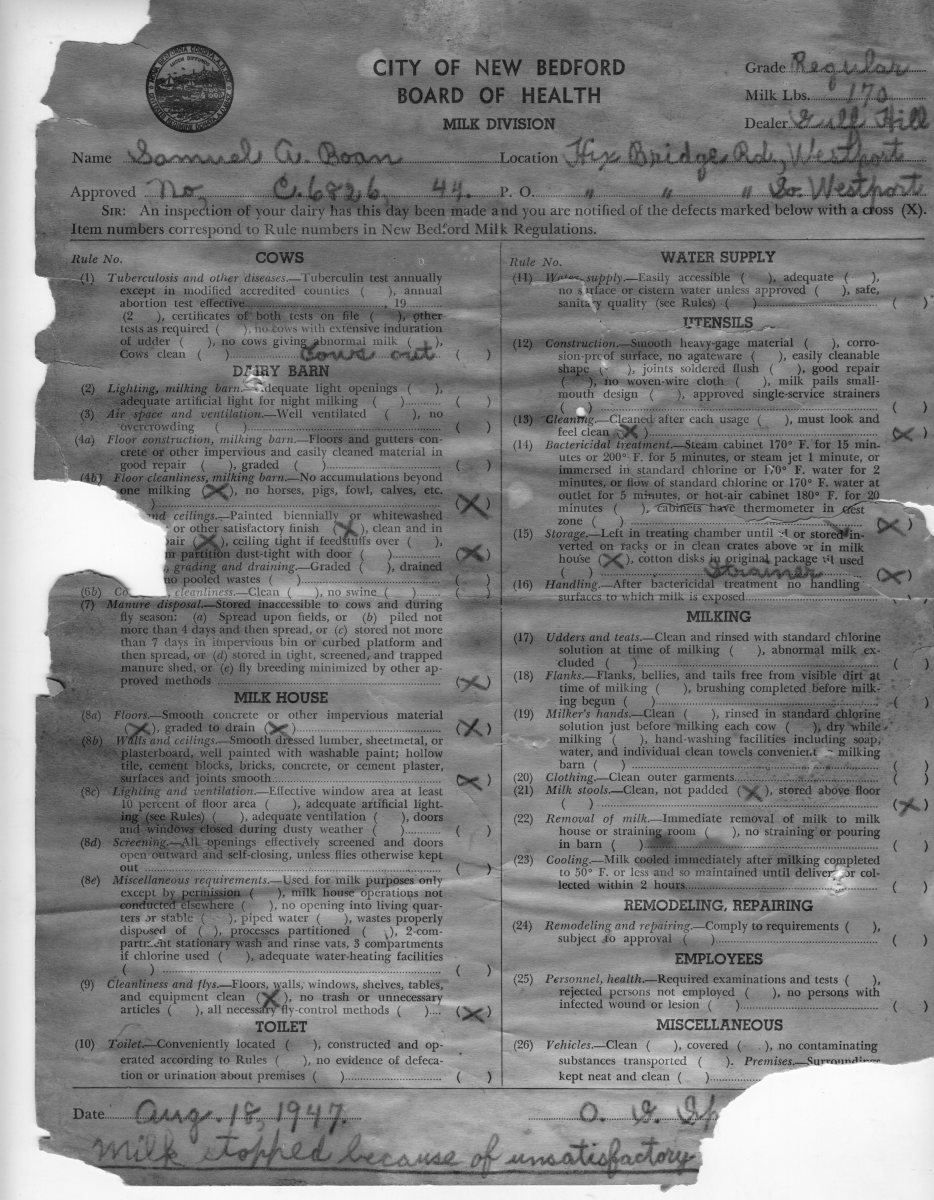 CITY OF NEW BEDFORD
BOARD OF HEALTH
MILK DIVISION
Grade Regular
Milk Lbs. 170
Dealer Gulf Hill
Name Samuel A. Boan Location Hix Bridge Rd, Westport
Approved No, C.6826 44. P. O. " " " So. Westport
SIR: An inspection of your dairy has this day been made and you are notified of the defects marked below with a cross (X).
Item numbers correspond to Rule numbers in New Bedford Milk Regulations.
Rule No. COWS
(1) Tuberculosis and other diseases.—Tuberculin test annually
except in modified accredited counties ( ), annual
abortion test effective, 19
(2 ), certificates of both tests on file ( ), other
tests as required ( ), no cows with extensive induration
of udder ( ), no cows giving abnormal milk ( ),
Cows clean ( ) Cows out ( )
DAIRY BARN
(2) Lighting, milking barn.—Adequate light openings ( ),
adequate artificial light for night milking ( ) ( )
(3) Air space and ventilation.—Well ventilated ( ), no
overcrowding ( ) ( )
(4a) Floor construction, milking barn.—Floors and gutters con-
crete or other impervious and easily cleaned material in
good repair ( ), graded ( ) ( )
(4b) Floor cleanliness, milking barn.—No accumulations beyond
one milking (X), no horses, pigs, fowl, calves, etc.
) (X)
and ceilings.—Painted biennially or whitewashed
or other satisfactory finish (X), clean and in
pair (X), ceiling tight if feedstuffs over ( ),
partition dust-tight with door ( ) (X)
, grading and draining.—Graded ( ), drained
no pooled wastes ( ) ( )
(6b) Co cleanliness.—Clean ( ), no swine ( ) ( )
(7) Manure disposal.—Stored inaccessible to cows and during
fly season: (a) Spread upon fields, or (b) piled not
more than 4 days and then spread, or (c) stored not more
than 7 days in impervious bin or curbed platform and
then spread, or (d) stored in tight, screened, and trapped
manure shed, or (e) fly breeding minimized by other ap-
proved methods (X)
MILK HOUSE
(8a) Floors.—Smooth concrete or other impervious material
(X), graded to drain (X) (X)
(8b) Walls and ceilings.—Smooth dressed lumber, sheetmetal, or
plasterboard, well painted with washable paint; hollow
tile, cement blocks, bricks, concrete, or cement plaster,
surfaces and joints smooth (X)
(8c) Lighting and ventilation.—Effective window area at least
10 percent of floor area ( ), adequate artificial light-
ing (see Rules) ( ), adequate ventilation ( ), doors
and windows closed during dusty weather ( ) ( )
(8d) Screening.—All openings effectively screened and doors
open outward and self-closing, unless flies otherwise kept
out ( )
(8e) Miscellaneous requirements.—Used for milk purposes only
except by permission ( ), milk house operations not
conducted elsewhere ( ), no opening into living quar-
ters or stable ( ), piped water ( ), wastes properly
disposed of ( ), processes partitioned ( ), 2-com-
partment stationary wash and rinse vats, 3 compartments
if chlorine used ( ), adequate water-heating facilities
( ) ( )
(9) Cleanliness and flys.—Floors, walls, windows, shelves, tables,
and equipment clean (X), no trash or unnecessary
articles ( ), all necessary fly-control methods ( ) (X)
TOILET
(10) Toilet.—Conveniently located ( ), constructed and op-
erated according to Rules ( ), no evidence of defeca-
tion or urination about premises ( ) ( )
Rule No. WATER SUPPLY
(11) Water supply.—Easily accessible ( ), adequate ( ),
no surface or cistern water unless approved ( ), safe,
sanitary quality (see Rules) ( ) ( )
UTENSILS
(12) Construction.—Smooth heavy-gage material ( ), corro-
sion-proof surface, no agateware ( ), easily cleanable
shape ( ), joints soldered flush ( ), good repair
( ), no woven-wire cloth ( ), milk pails small-
mouth design ( ), approved single-service strainers
( ) ( )
(13) Cleaning.—Cleaned after each usage ( ), must look and
feel clean (X) (X)
(14) Bactericidal treatment.—Steam cabinet 170° F. for 15 min-
utes or 200° F. for 5 minutes, or steam jet 1 minute, or
immersed in standard chlorine or 170° F. water for 2
minutes, or flow of standard chlorine or 170° F. water at
outlet for 5 minutes, or hot-air cabinet 180° F. for 20
minutes ( ), cabinets have thermometer in
zone ( ) (X)
(15) Storage.—Left in treating chamber until or stored in-
verted on racks or in clean crates above or in milk
house (X), cotton disks in original package til used
( ) Strainer (X)
(16) Handling.—After bactericidal treatment no handling
surfaces to which milk is exposed ( )
MILKING
(17) Udders and teats.—Clean and rinsed with standard chlorine
solution at time of milking ( ), abnormal milk ex-
cluded ( ) ( )
(18) Flanks.—Flanks, bellies, and tails free from visible dirt at
time of milking ( ), brushing completed before milk-
ing begun ( ) ( )
(19) Milker's hands.—Clean ( ), rinsed in standard chlorine
solution just before milking each cow ( ), dry while
milking ( ), hand-washing facilities including soap,
water, and individual clean towels convenient milking
barn ( ) ( )
(20) Clothing.—Clean outer garments ( )
(21) Milk stools.—Clean, not padded (X), stored above floor
( ) (X)
(22) Removal of milk.—Immediate removal of milk to milk
house or straining room ( ), no straining or pouring
in barn ( ) ( )
(23) Cooling.—Milk cooled immediately after milking completed
to 50° F. or less and so maintained until deliver or col-
lected within 2 hours ( )
REMODELING, REPAIRING
(24) Remodeling and repairing.—Comply to requirements ( ),
subject to approval ( ) ( )
EMPLOYEES
(25) Personnel, health.—Required examinations and tests ( ),
rejected persons not employed ( ), no persons with
infected wound or lesion ( ) ( )
MISCELLANEOUS
(26) Vehicles.—Clean ( ), covered ( ), no contaminating
substances transported ( ). Premises.—Surroundings
kept neat and clean ( )
Date Aug. 18, 1947.
Milk stopped because of unsatisfactory